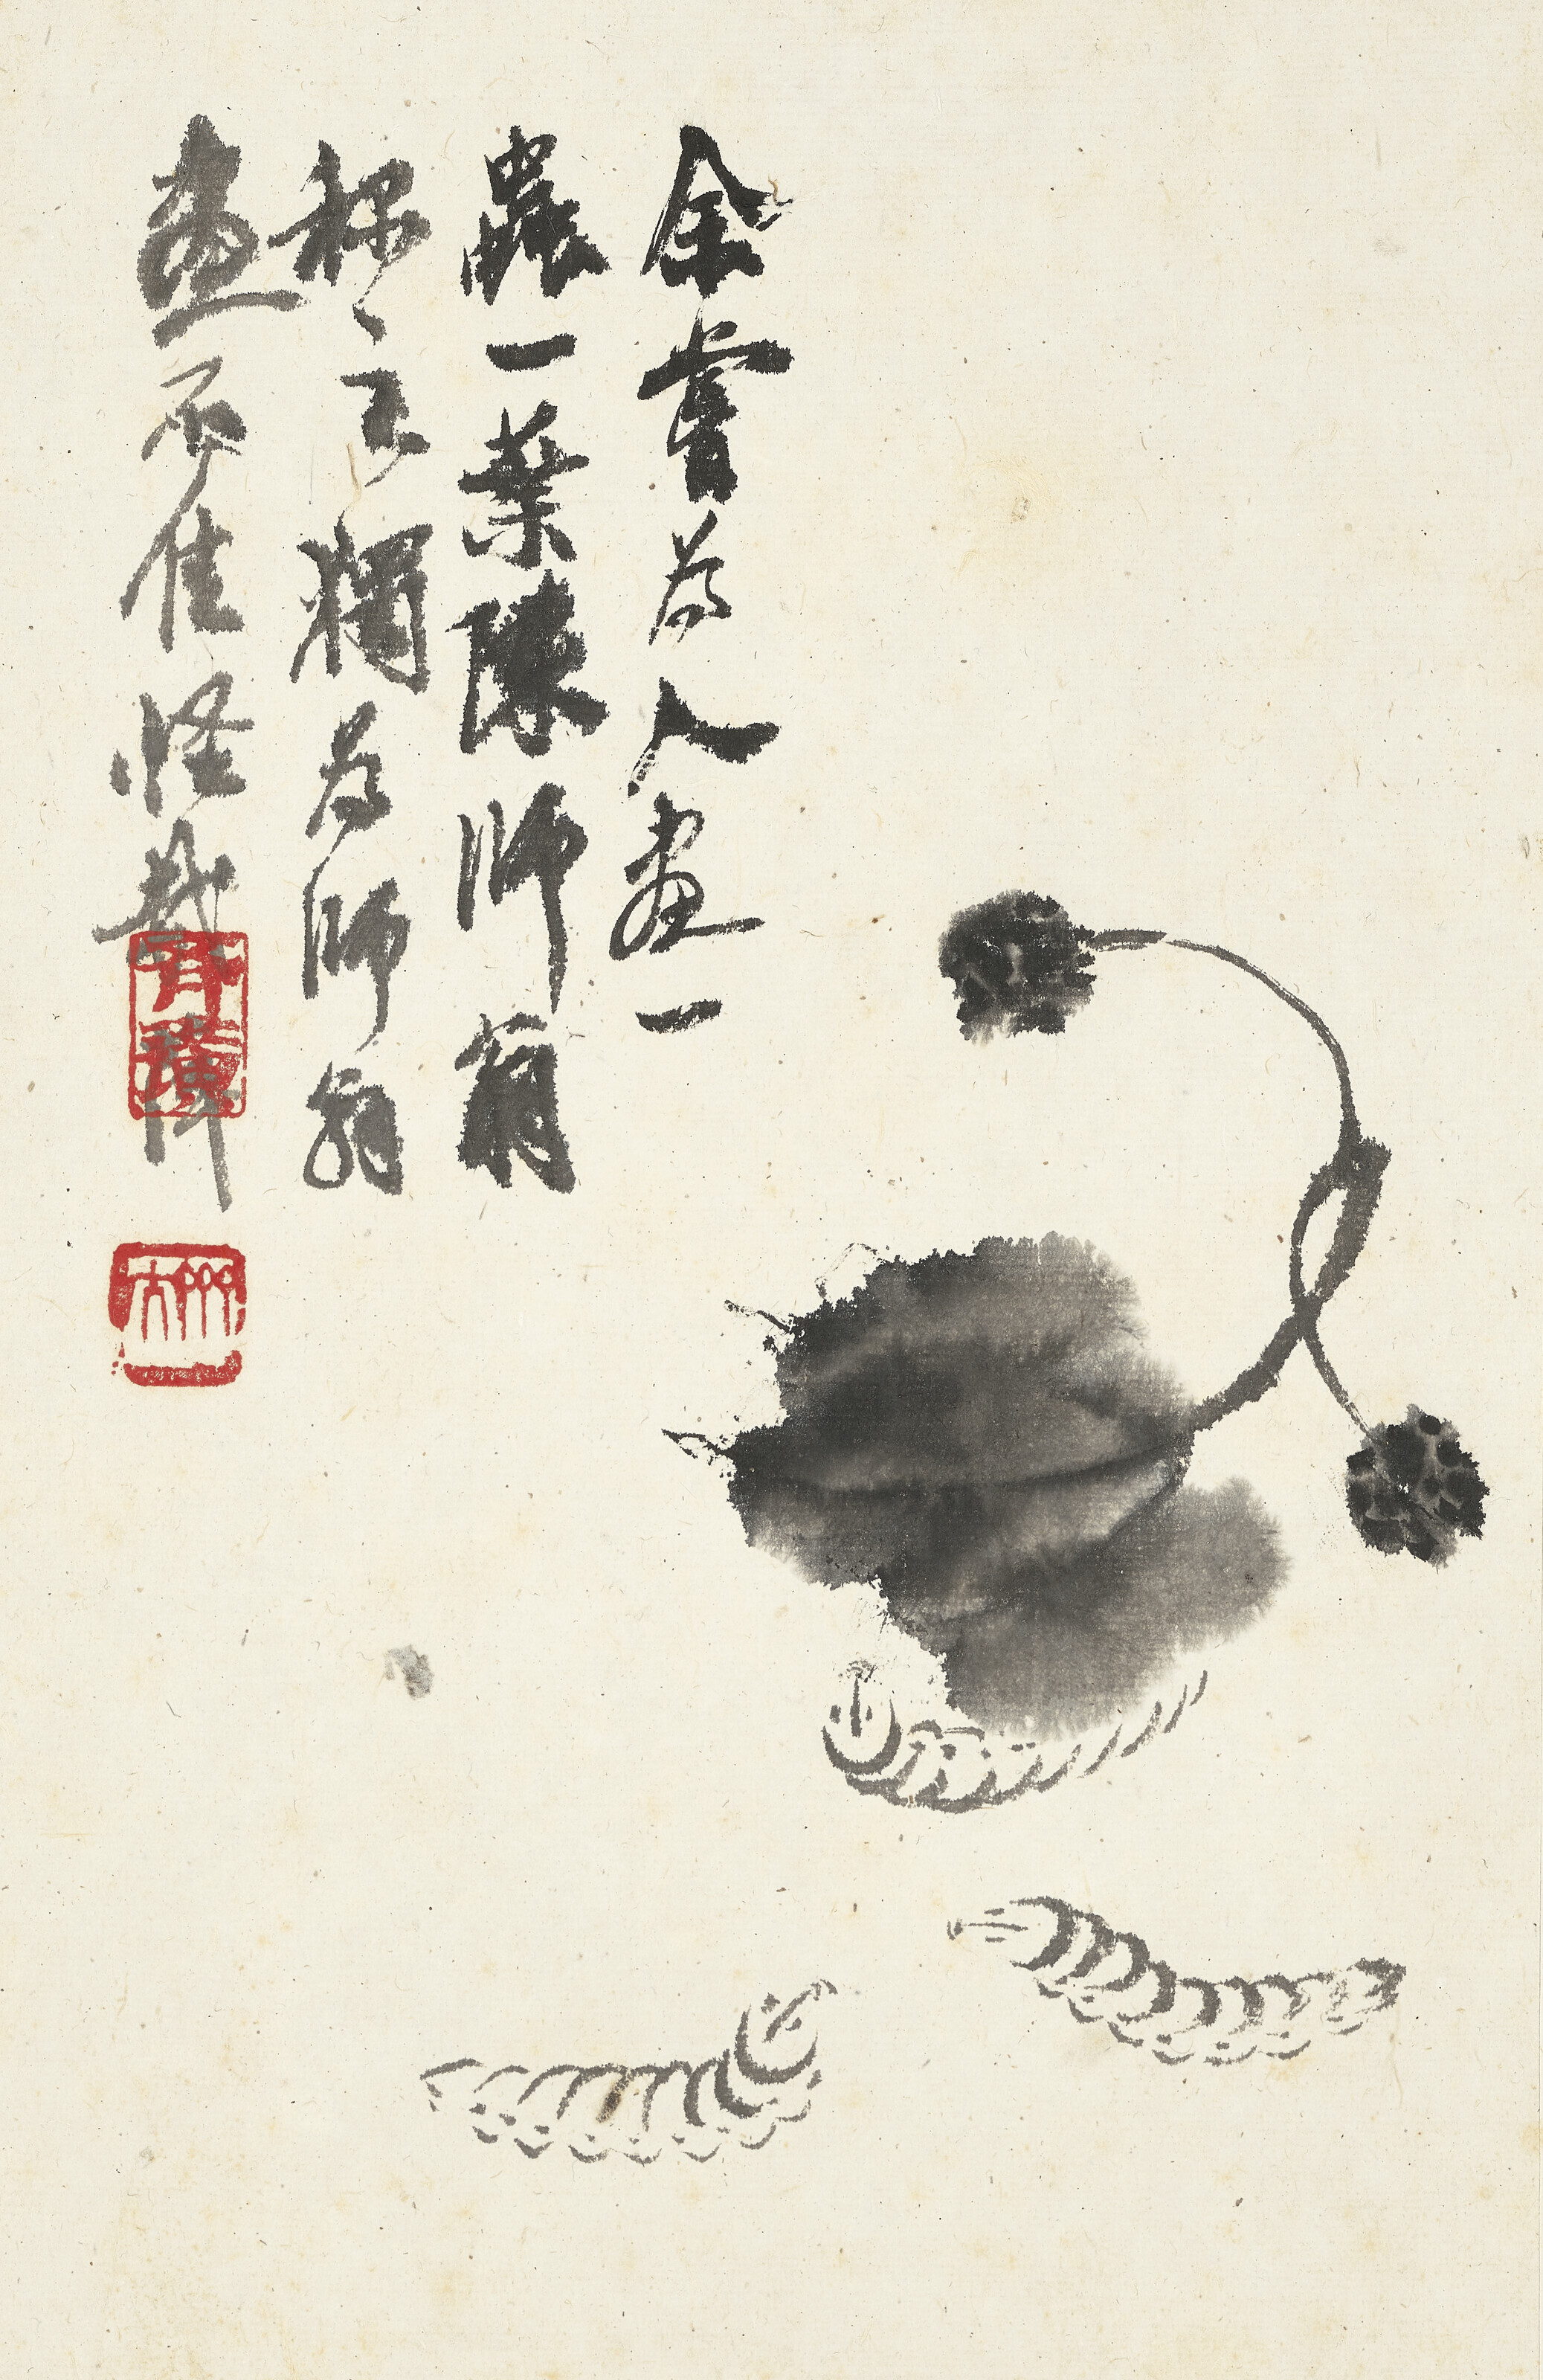 余嘗為人畫一
蟲一葉陳師曾
稱之獨為師曾
畫不佳怪哉
齊璜